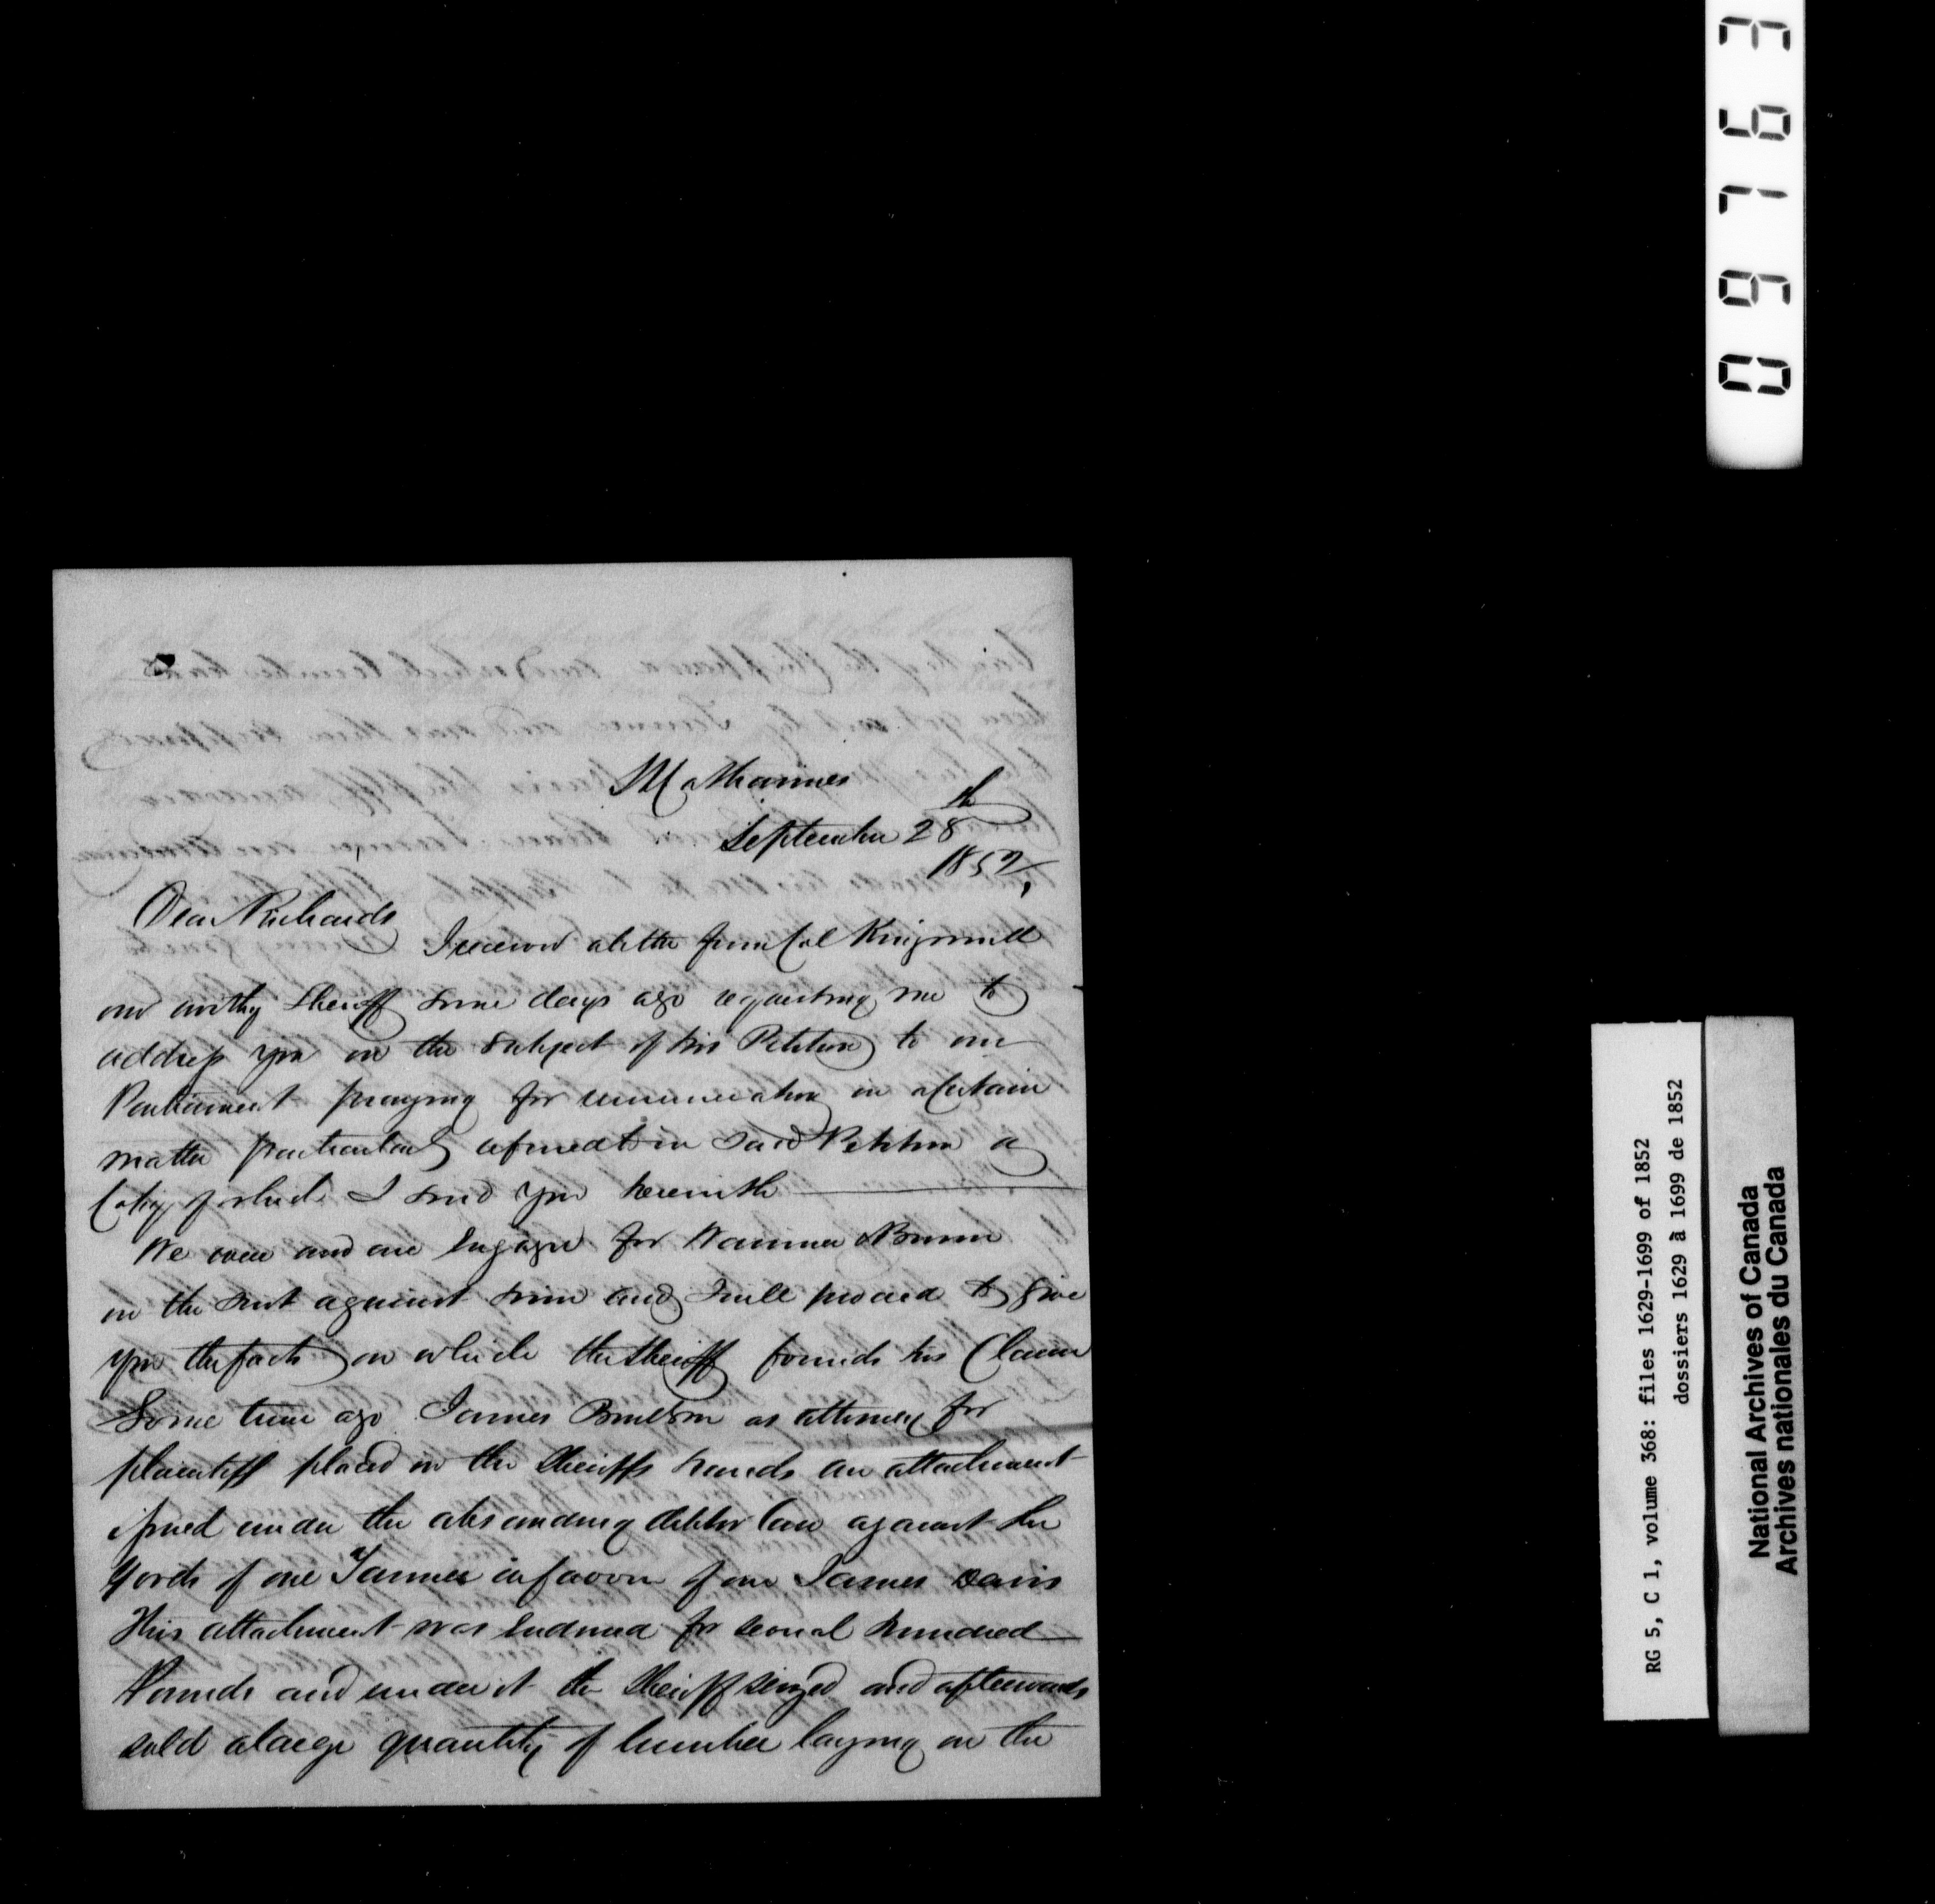 St Catharines
September 28th
1852,
Dear Richards
I received a letter from Col Kingsmill
our worthy Sheriff some days ago requesting me to
address you on the subject of his Petition to our
Parliament praying for remuneration in a certain
matter particularly referred to in said Petition a
Copy of which I send you herewith
We were and are engaged for
in the suit against him and I will proceed to give
you the facts on which the Sheriff founds his Claim
Some time ago James Boulton as attorney for
plaintiff placed in the Sheriffs hands an attachment
issued under the absconding debtor law against the
goods of one Tanner in favour of one James Davis
This attachment was endorsed for several hundred
Pounds and under it the Sheriff seized and afterwards
sold a large quantity of lumber laying on the
09763
RG 5, C 1, volume 368: files 1629-1699 of 1852
dossiers 1629 à 1699 de 1852
National Archives of Canada
Archives nationales du Canada